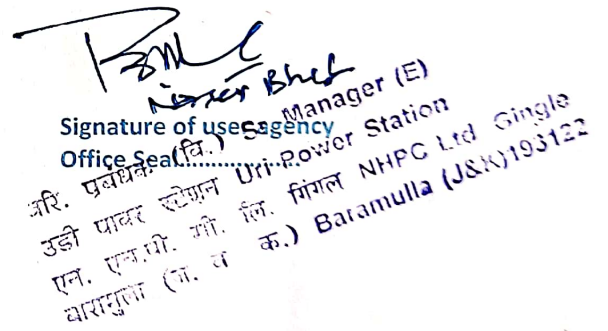 Signature of user agency
Office Seal....................
वरि. प्रबंधक (वि.) Sr. Manager (E)
उड़ी पावर स्टेशन Uri Power Station
एन. एच.पी. सी. लि. गिंगल NHPC Ltd Gingle
बारामुला (ज. व क.) Baramulla (J&K) 193122